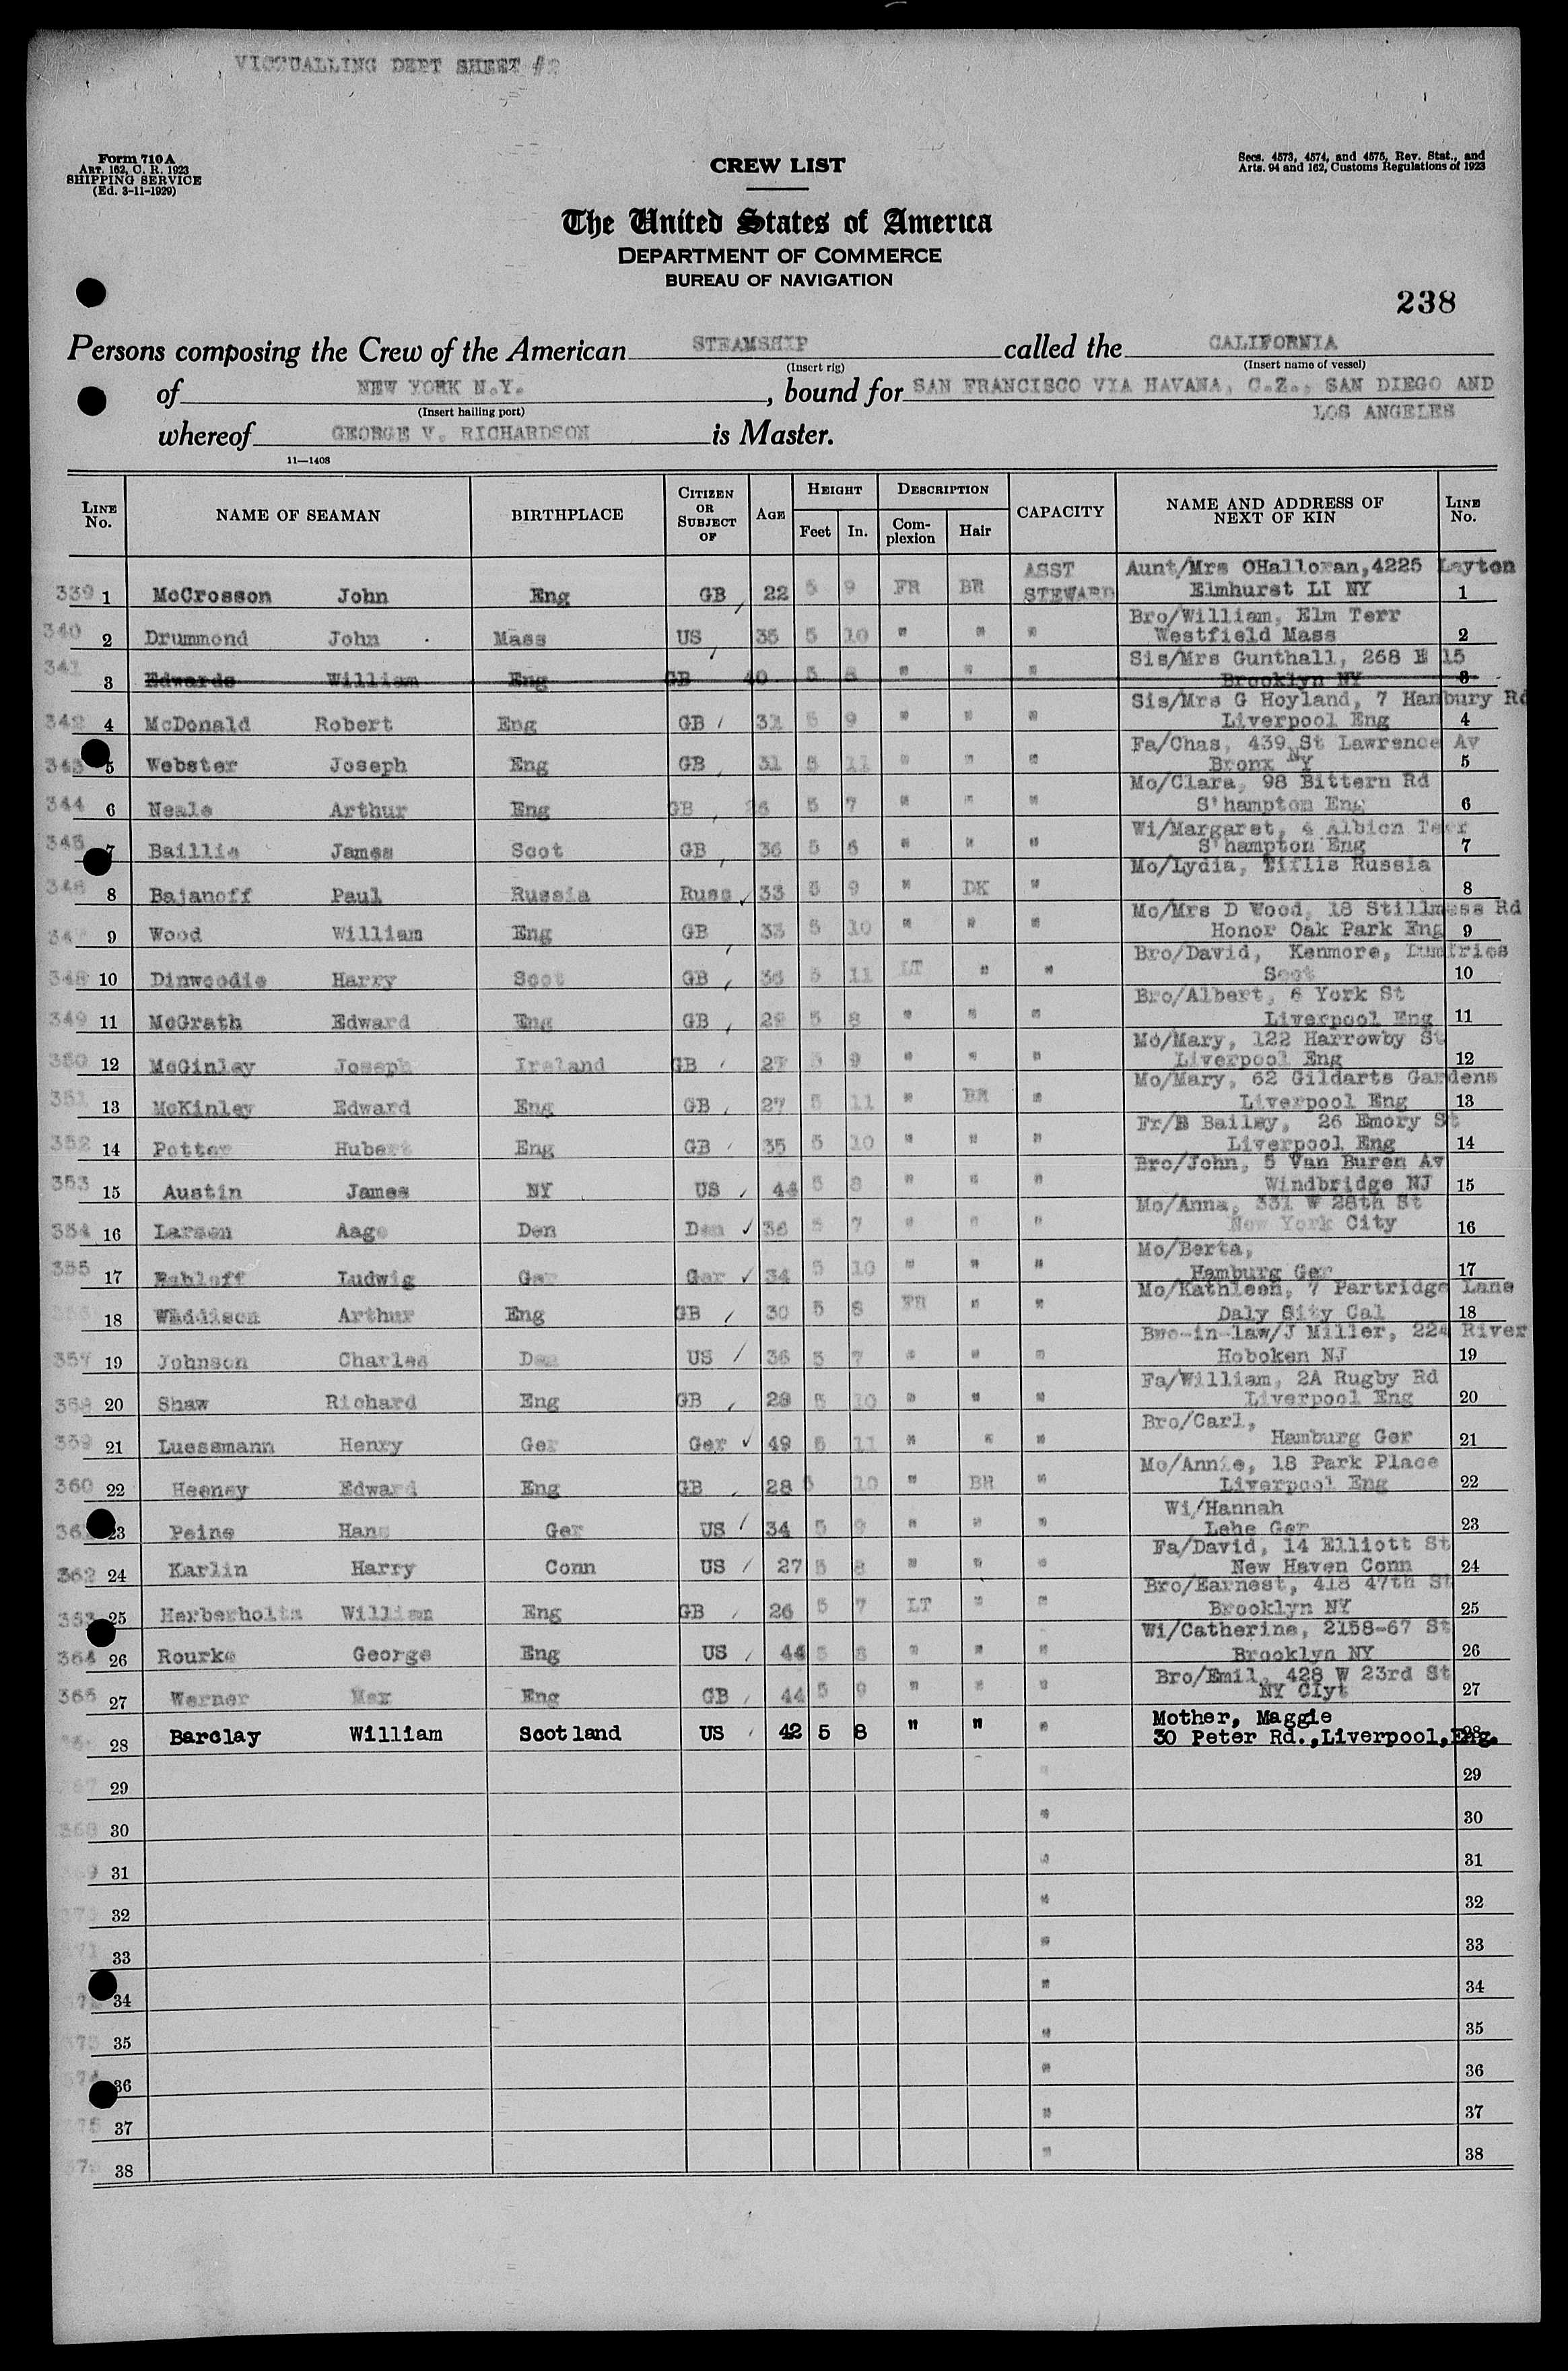 VICTUALLING DEPT SHEET #2
Form 710 A
Art. 162, C. R. 1923
SHIPPING SERVICE
(Ed. 3-11-1929)
CREW LIST
Secs. 4573, 4574, and 4575, Rev. Stat., and
Arts. 94 and 162, Customs Regulations of 1923
The United States of America
DEPARTMENT OF COMMERCE
BUREAU OF NAVIGATION
238
Persons composing the Crew of the American STEAMSHIP called the CALIFORNIA
(Insert rig) (Insert name of vessel)
of NEW YORK N.Y. , bound for SAN FRANCISCO VIA HAVANA, C.Z., SAN DIEGO AND
(Insert hailing port) LOS ANGELES
whereof GEORGE V. RICHARDSON is Master.
11—1408
LINE No. NAME OF SEAMAN BIRTHPLACE CITIZEN OR SUBJECT OF AGE HEIGHT Feet In. DESCRIPTION Complexion Hair CAPACITY NAME AND ADDRESS OF NEXT OF KIN LINE No.
ASST Aunt/Mrs OHalloran,4225 Layton
339 1 McCrosson John Eng GB 22 5 9 FR BR STEWARD Elmhurst LI NY 1
Bro/William, Elm Terr
340 2 Drummond John Mass US 35 5 10 " " " Westfield Mass 2
Sis/Mrs Gunthall, 268 E 15
341 3 Edwards William Eng GB 40 5 8 " " " Brooklyn NY 3
Sis/Mrs G Hoyland, 7 Hanbury Rd
342 4 McDonald Robert Eng GB 31 5 9 " " " Liverpool Eng 4
Fa/Chas, 439 St Lawrence Av
343 5 Webster Joseph Eng GB 31 5 11 " " " Bronx NY 5
Mo/Clara, 98 Bittern Rd
344 6 Neale Arthur Eng GB 26 5 7 " " " S'hampton Eng 6
Wi/Margaret, 4 Albion Terr
345 7 Baillie James Scot GB 36 5 6 " " " S'hampton Eng 7
Mo/Lydia, Tiflis Russia
346 8 Bajanoff Paul Russia Russ ✓ 33 5 9 " DK " 8
Mo/Mrs D Wood, 18 Stillness Rd
347 9 Wood William Eng GB 33 5 10 " " " Honor Oak Park Eng 9
Bro/David, Kenmore, Dumfries
348 10 Dinwoodie Harry Scot GB 36 5 11 LT " " Scot 10
Bro/Albert, 6 York St
349 11 McGrath Edward Eng GB 29 5 8 " " " Liverpool Eng 11
Mo/Mary, 122 Harrowby St
350 12 McGinley Joseph Ireland GB 27 5 9 " " " Liverpool Eng 12
Mo/Mary, 62 Gildarts Gardens
351 13 McKinley Edward Eng GB 27 5 11 " BR " Liverpool Eng 13
Fr/B Bailey, 26 Emory St
352 14 Potter Hubert Eng GB 35 5 10 " " " Liverpool Eng 14
Bro/John, 5 Van Buren Av
353 15 Austin James NY US 44 5 8 " " " Windbridge NJ 15
Mo/Anna, 331 W 28th St
354 16 Larsen Aage Den Den ✓ 36 5 7 " " " New York City 16
Mo/Berta,
355 17 Ludwig Ger Ger ✓ 34 5 10 " " " Hamburg Ger 17
Mo/Kathleen, 7 Partridge Lane
356 18 Waddison Arthur Eng GB 30 5 8 FR " " Daly Sity Cal 18
Bwo-in-law/J Miller, 224 River
357 19 Johnson Charles Den US 36 5 7 " " " Hoboken NJ 19
Fa/William, 2A Rugby Rd
358 20 Shaw Richard Eng GB 28 5 10 " " " Liverpool Eng 20
Bro/Carl,
359 21 Luessmann Henry Ger Ger ✓ 49 5 11 " " " Hamburg Ger 21
Mo/Annie, 18 Park Place
360 22 Heeney Edward Eng GB 28 5 10 " BR " Liverpool Eng 22
Wi/Hannah
361 23 Peine Hans Ger US 34 5 9 " " " Lehe Ger 23
Fa/David, 14 Elliott St
362 24 Karlin Harry Conn US 27 5 8 " " " New Haven Conn 24
Bro/Earnest, 418 47th St
363 25 Herberholtz William Eng GB 26 5 7 LT " " Brooklyn NY 25
Wi/Catherine, 2158-67 St
364 26 Rourke George Eng US 44 5 8 " " " Brooklyn NY 26
Bro/Emil, 428 W 23rd St
365 27 Werner Max Eng GB 44 5 9 " " " NY CIyt 27
Mother, Maggie
28 Barclay William Scotland US 42 5 8 " " " 30 Peter Rd.,Liverpool,Eng. 28
367 29 " 29
368 30 " 30
369 31 " 31
32 " 32
371 33 " 33
34 " 34
373 35 " 35
374 36 " 36
375 37 " 37
38 " 38